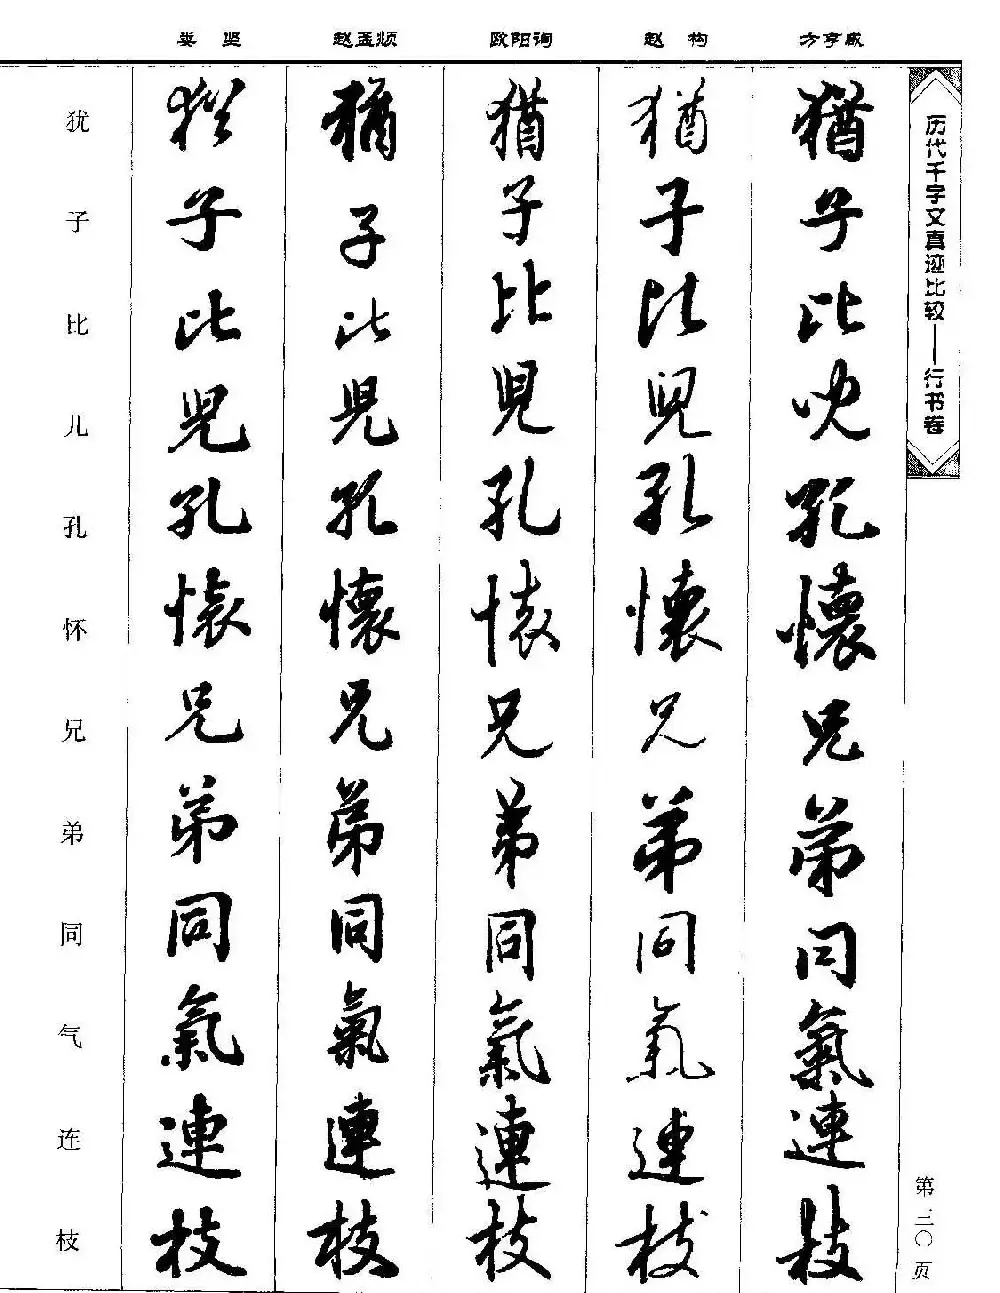 历代千字文真迹比较——行书卷
第三〇页
方亨咸
猶子比兒孔懷兄弟同氣連枝
赵构
猶子比兒孔懷兄弟同氣連枝
欧阳询
猶子比兒孔懷兄弟同氣連枝
赵孟頫
猶子比兒孔懷兄弟同氣連枝
娄坚
猶子比兒孔懷兄弟同氣連枝
犹子比儿孔怀兄弟同气连枝